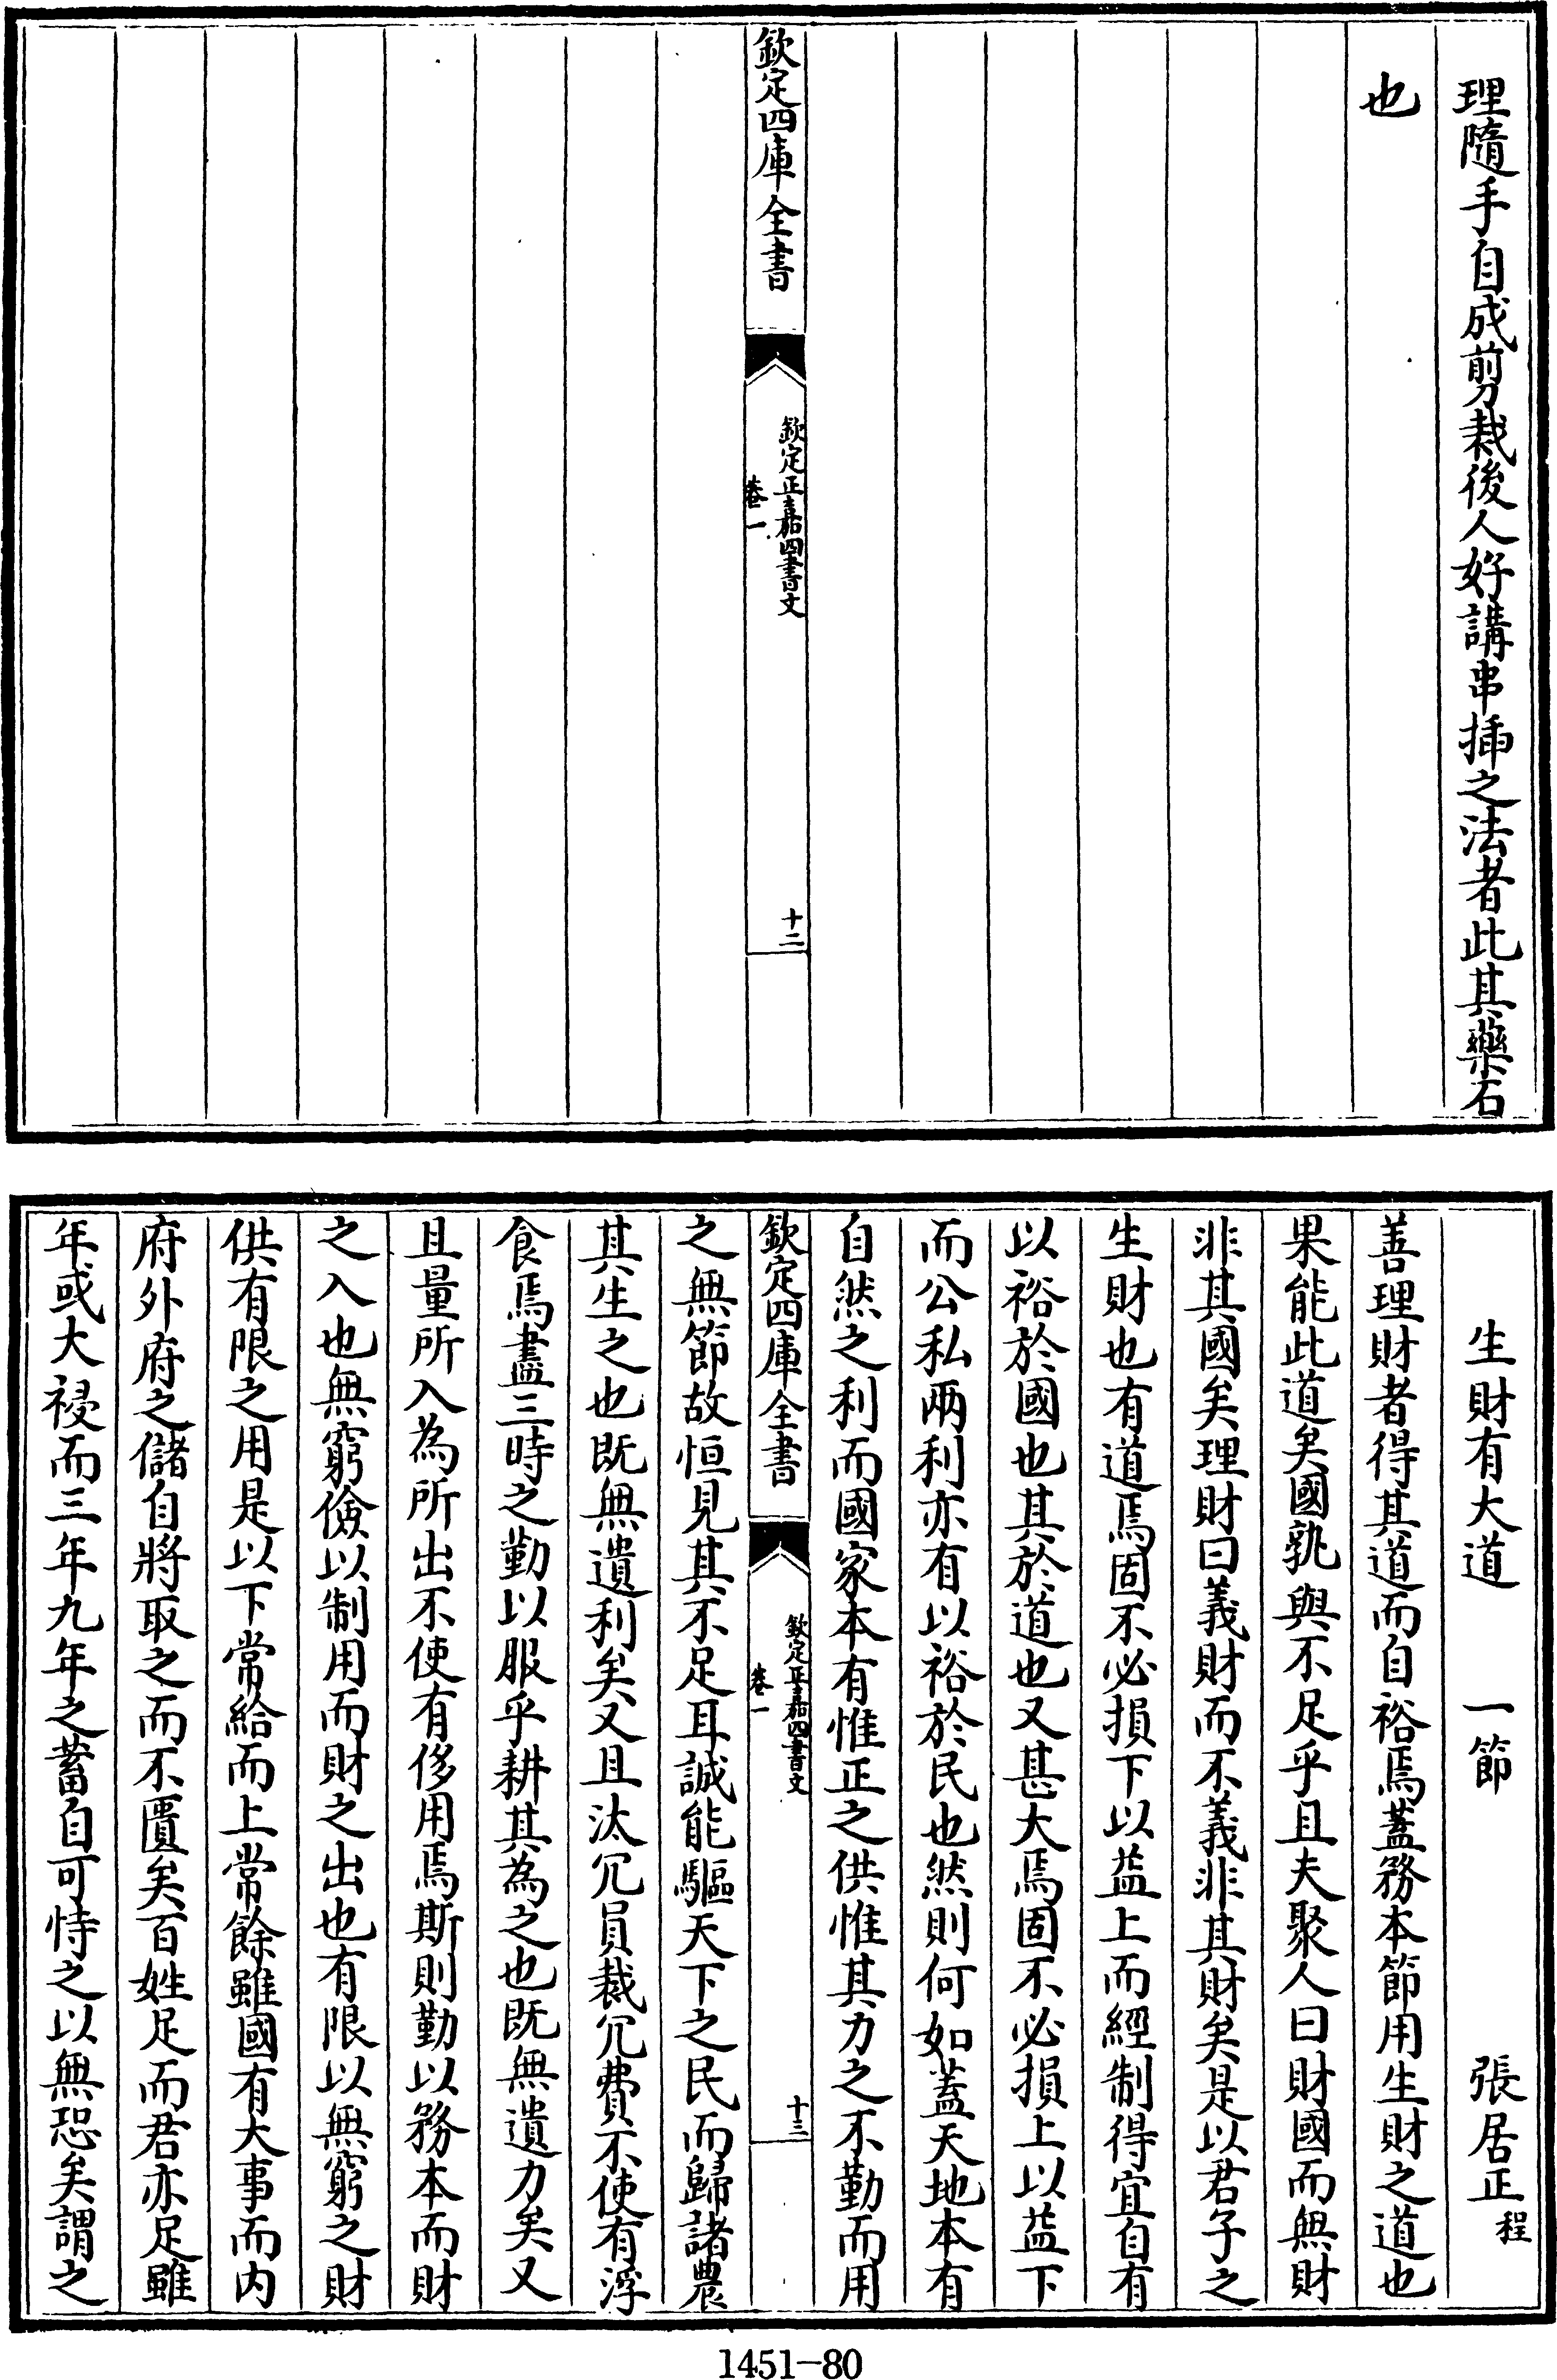 理隨手自成剪裁後人好講串揷之法者此其藥石
也
欽定四庫全書
欽定正嘉四書文
卷一
十二
生財有大道 一節 張居正 程
善理財者得其道而自裕焉葢務本節用生財之道也
果能此道矣國孰與不足乎且夫聚人曰財國而無財
非其國矣理財曰義財而不義非其財矣是以君子之
生財也有道焉固不必損下以益上而經制得宜自有
以裕於國也其於道也又甚大焉固不必損上以益下
而公私兩利亦有以裕於民也然則何如葢天地本有
自然之利而國家本有惟正之供惟其力之不勤而用
欽定四庫全書
欽定正嘉四書文
卷一
十三
之無節故恒見其不足耳誠能驅天下之民而歸諸農
其生之也既無遺利矣又且汰冗員裁冗費不使有浮
食焉盡三時之勤以服乎耕其為之也既無遺力矣又
且量所入為所出不使有侈用焉斯則勤以務本而財
之入也無窮儉以制用而財之出也有限以無窮之財
供有限之用是以下常給而上常餘雖國有大事而内
府外府之儲自將取之而不匱矣百姓足而君亦足雖
年或大祲而三年九年之蓄自可恃之以無恐矣謂之
1451-80